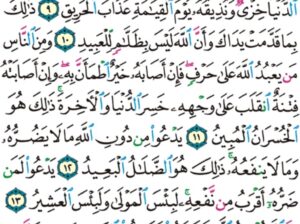 ٱلدُّنْيَا خِزْىٌ وَنُذِيقُهُۥ يَوْمَ ٱلْقِيَٰمَةِ عَذَابَ ٱلْحَرِيقِ ٩ ذَٰلِكَ
بِمَا قَدَّمَتْ يَدَاكَ وَأَنَّ ٱللَّهَ لَيْسَ بِظَلَّٰمٍ لِّلْعَبِيدِ ١٠ وَمِنَ ٱلنَّاسِ
مَن يَعْبُدُ ٱللَّهَ عَلَىٰ حَرْفٍ فَإِنْ أَصَابَهُۥ خَيْرٌ ٱطْمَأَنَّ بِهِۦ وَإِنْ أَصَابَتْهُ
فِتْنَةٌ ٱنقَلَبَ عَلَىٰ وَجْهِهِۦ خَسِرَ ٱلدُّنْيَا وَٱلْـَٔاخِرَةَ ذَٰلِكَ هُوَ
ٱلْخُسْرَانُ ٱلْمُبِينُ ١١ يَدْعُوا۟ مِن دُونِ ٱللَّهِ مَا لَا يَضُرُّهُۥ
وَمَا لَا يَنفَعُهُۥ ذَٰلِكَ هُوَ ٱلضَّلَٰلُ ٱلْبَعِيدُ ١٢ يَدْعُوا۟ لَمَن
ضَرُّهُۥٓ أَقْرَبُ مِن نَّفْعِهِۦ لَبِئْسَ ٱلْمَوْلَىٰ وَلَبِئْسَ ٱلْعَشِيرُ ١٣